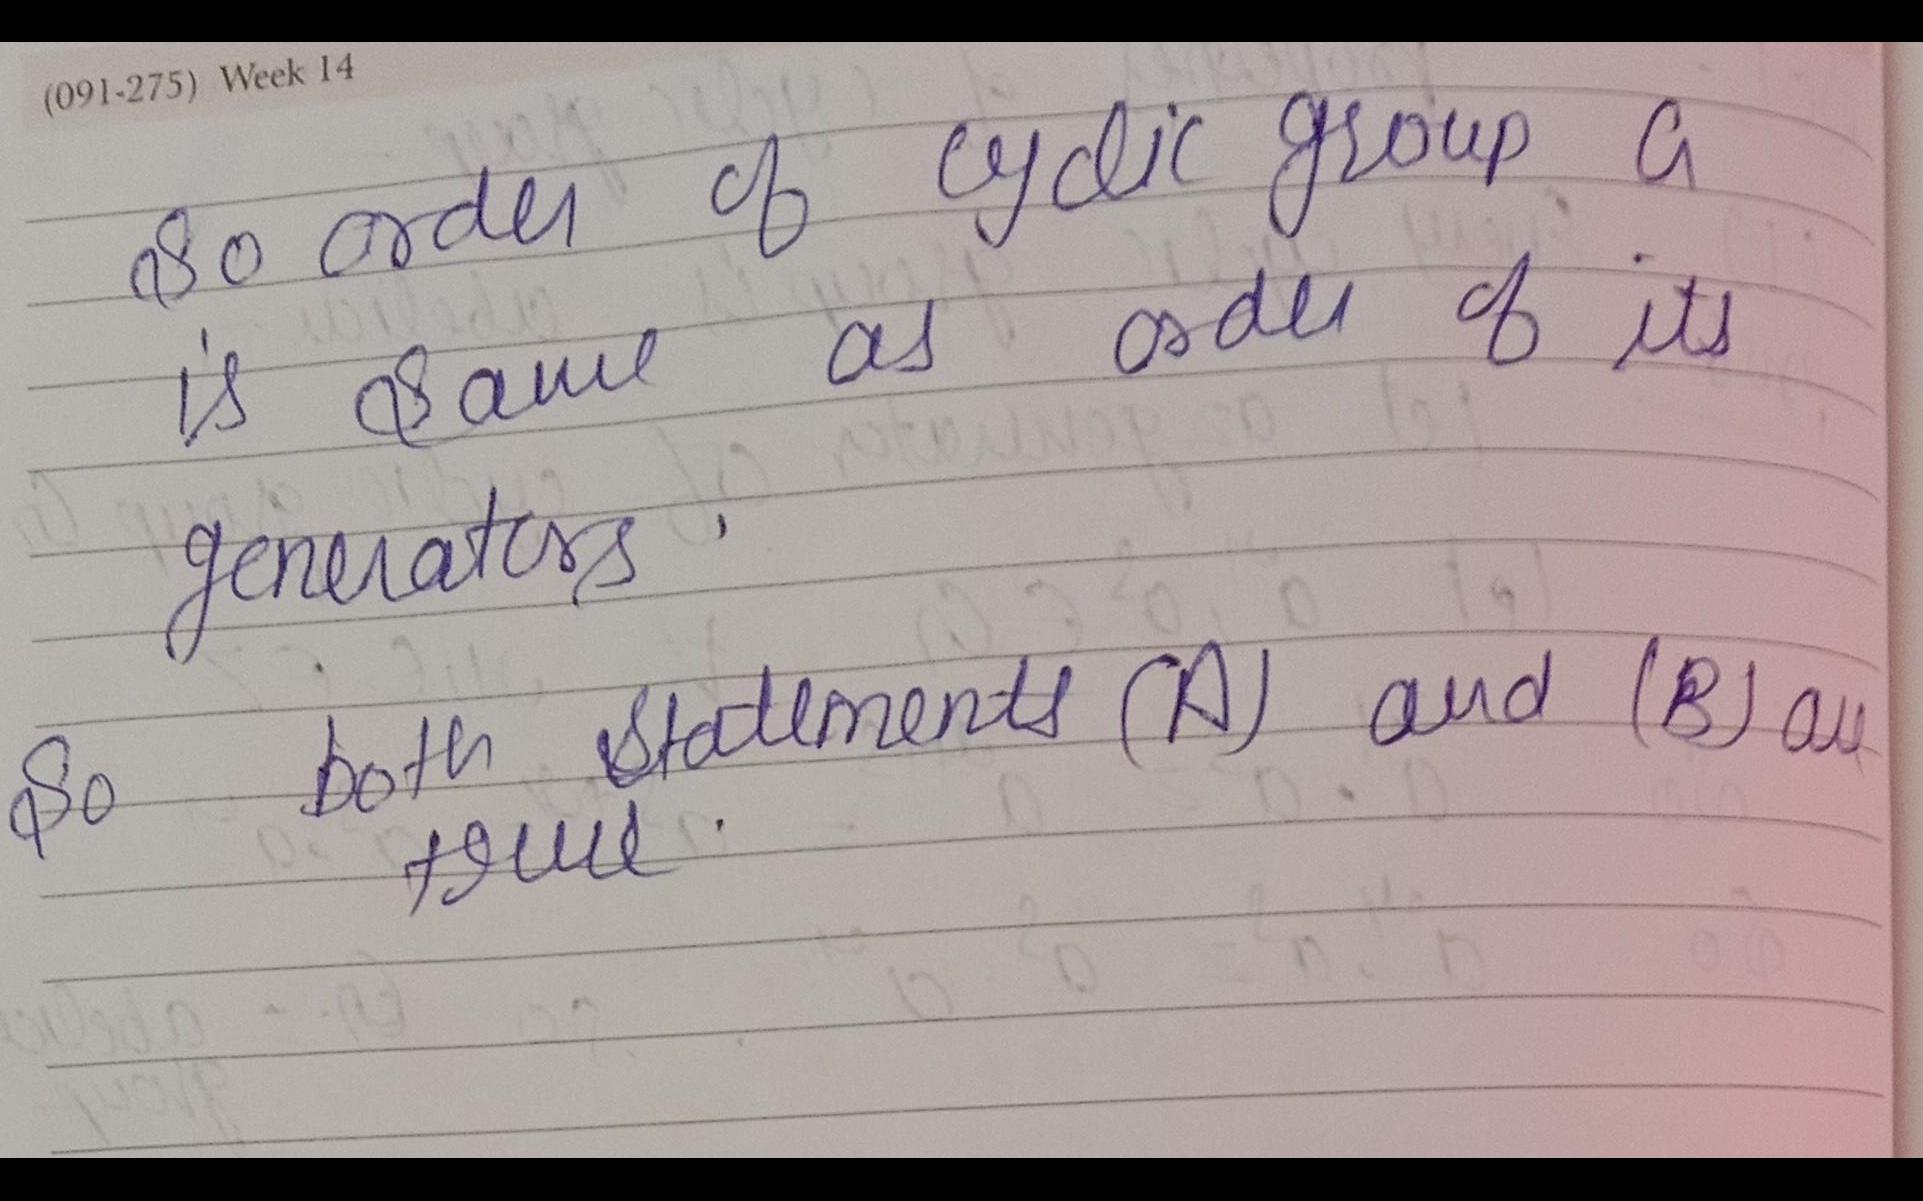 (091-275) Week 14
So order of cyclic group G
is same as order of its
generators.
So both statements (A) and (B) are
true.